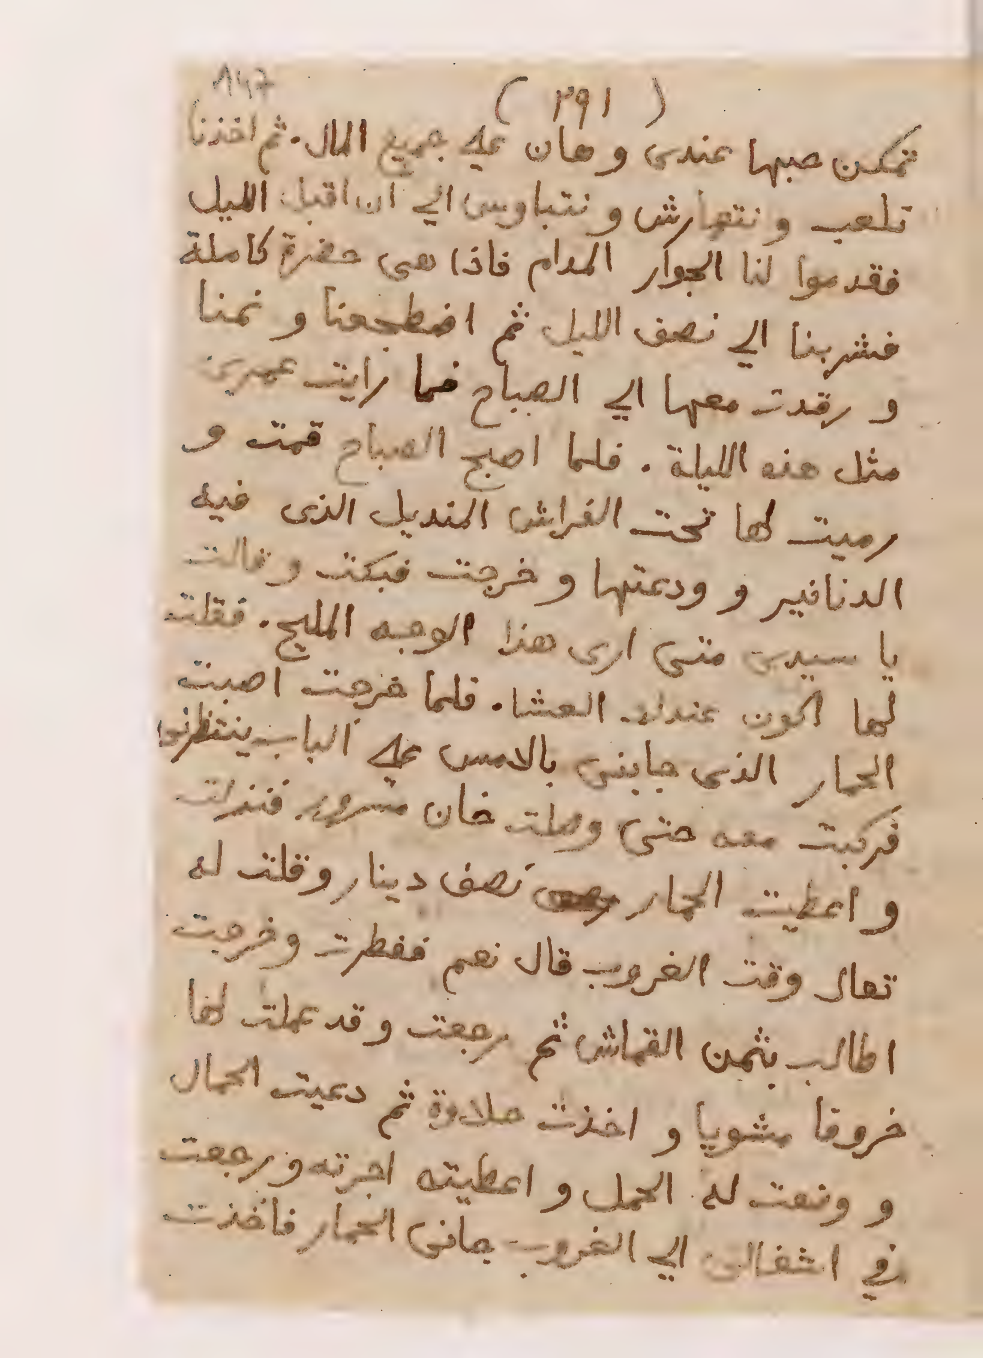 ١٤٧
( ٢٩١ )
تمكن حبها عندى و هان علي جميع المال. ثم اخذنا
نلعب و نتهارش و نتباوس الي ان اقبل الليل
فقدموا لنا الجوار المدام فاذا هى حضرة كاملة
فشربنا الي نصف الليل ثم اضطجعنا و نمنا
و رقدت معها الي الصباح فما رايت عمرى
مثل هذه الليلة . فلما اصبح الصباح قمت و
رميت لها تحت الفراش المنديل الذى فيه
الدنانير و ودعتها و خرجت فبكت و قالت
يا سيدى متى ارى هذا الوجه المليح. فقلت
لها اكون عندك العشا. فلما خرجت اصبت
الحمار الذى جابنى بالامس علي الباب ينتظرنى
فركبت معه حتى وصلت خان مسرور فنزلت
و اعطيت الحمار نصف دينار و قلت له
تعال وقت الغروب قال نعم ففطرت و خرجت
اطالب بثمن القماش ثم رجعت و قد عملت لها
خروفا مشويا و اخذت حلاوة ثم دعيت الحمال
و وضعت له الحمل و اعطيته اجرته و رجعت
في اشغالى الي الغروب جانى الحمار فاخذت